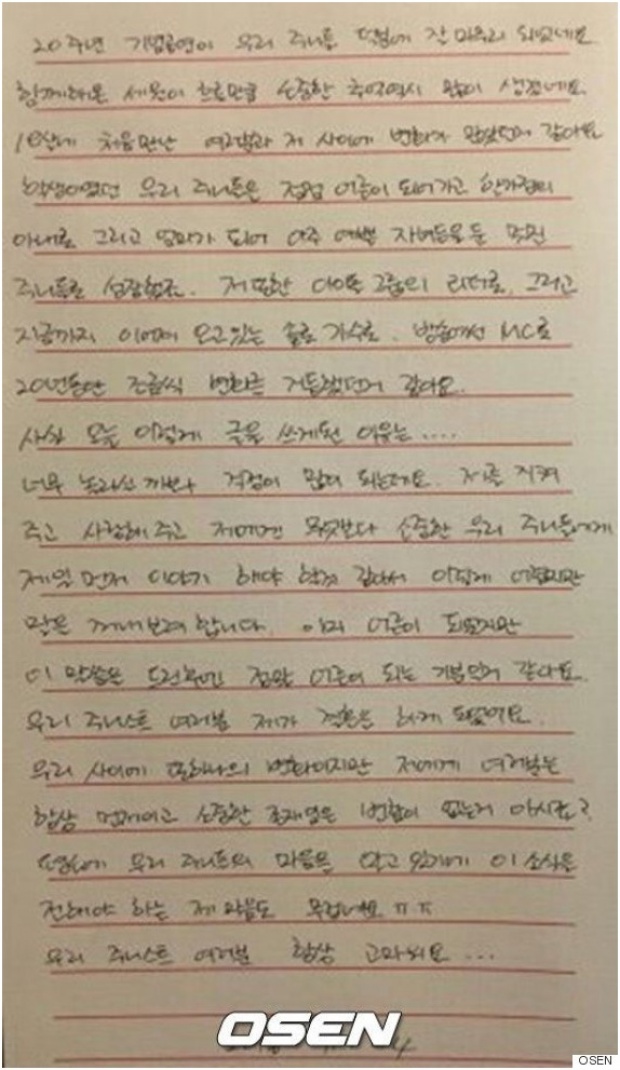 20주년 기념공연이 우리 주니들 덕분에 잘 마무리 되었네요
함께해온 세월이 흐른만큼 소중한 추억역시 많이 생겼네요.
18살에 처음만난 여러분과 저 사이에 변화가 많았던거 같아요
학생이였던 우리 주니들은 점점 어른이 되어가고 한가정의
아내로 그리고 엄마가 되어 아주 예쁜 자녀들을 둔 멋진
주니들로 성장했죠. 저 또한 아이돌 그룹의 리더로, 그리고
지금까지 이어져 오고있는 솔로 가수로, 방송에선 MC로
20년동안 조금씩 변화를 거듭했던거 같아요.
사실 오늘 이렇게 글을 쓰게된 이유는....
너무 놀라실까봐 걱정이 많이 되는데요. 저를 지켜
주고 사랑해주고 저에겐 무엇보다 소중한 우리 주니들에게
제일 먼저 이야기 해야 할것 같아서 이렇게 어렵지만
말을 꺼내보려 합니다. 이미 어른이 되었지만
이 말씀을 드린후엔 정말 어른이 되는 기분인거 같아요.
우리 주니스트 여러분 제가 결혼을 하게 되었어요.
우리 사이에 또하나의 변화이지만 저에게 여러분은
항상 먼저이고 소중한 존재임은 변함이 없는거 아시죠?
때문에 우리 주니들의 마음을 알고 있기에 이 소식을
전해야 하는 제 마음도 무겁네요 ㅠㅠ
우리 주니스트 여러분 항상 고마워요...
OSEN
OSEN